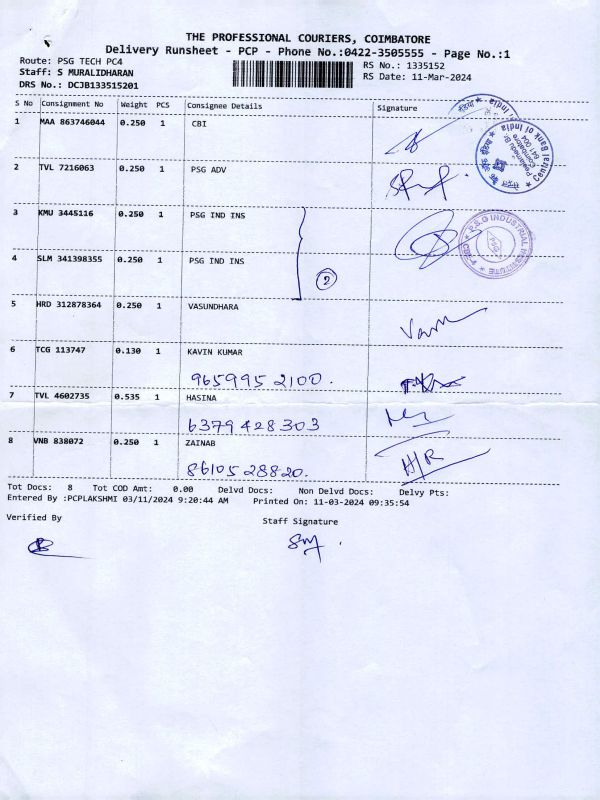 THE PROFESSIONAL COURIERS, COIMBATORE
Delivery Runsheet - PCP - Phone No.:0422-3505555 - Page No.:1
Route: PSG TECH PC4
RS No.: 1335152
Staff: S MURALIDHARAN
RS Date: 11-Mar-2024
DRS No.: DCJB133515201
S No Consignment No Weight PCS Consignee Details Signature
1 MAA 863746044 0.250 1 CBI
Central Bank of India
Peelamedu Br.
Coimbatore
641 004
2 TVL 7216063 0.250 1 PSG ADV
3 KMU 3445116 0.250 1 PSG IND INS
P.S.G INDUSTRIAL INSTITUTE
4 SLM 341398355 0.250 1 PSG IND INS
2
5 HRD 312878364 0.250 1 VASUNDHARA
6 TCG 113747 0.130 1 KAVIN KUMAR
9659952100.
7 TVL 4602735 0.535 1 HASINA
6379428303
8 VNB 838072 0.250 1 ZAINAB
8610528820.
H/R
Tot Docs: 8 Tot COD Amt: 0.00 Delvd Docs: Non Delvd Docs: Delvy Pts:
Entered By :PCPLAKSHMI 03/11/2024 9:20:44 AM Printed On: 11-03-2024 09:35:54
Verified By
Staff Signature